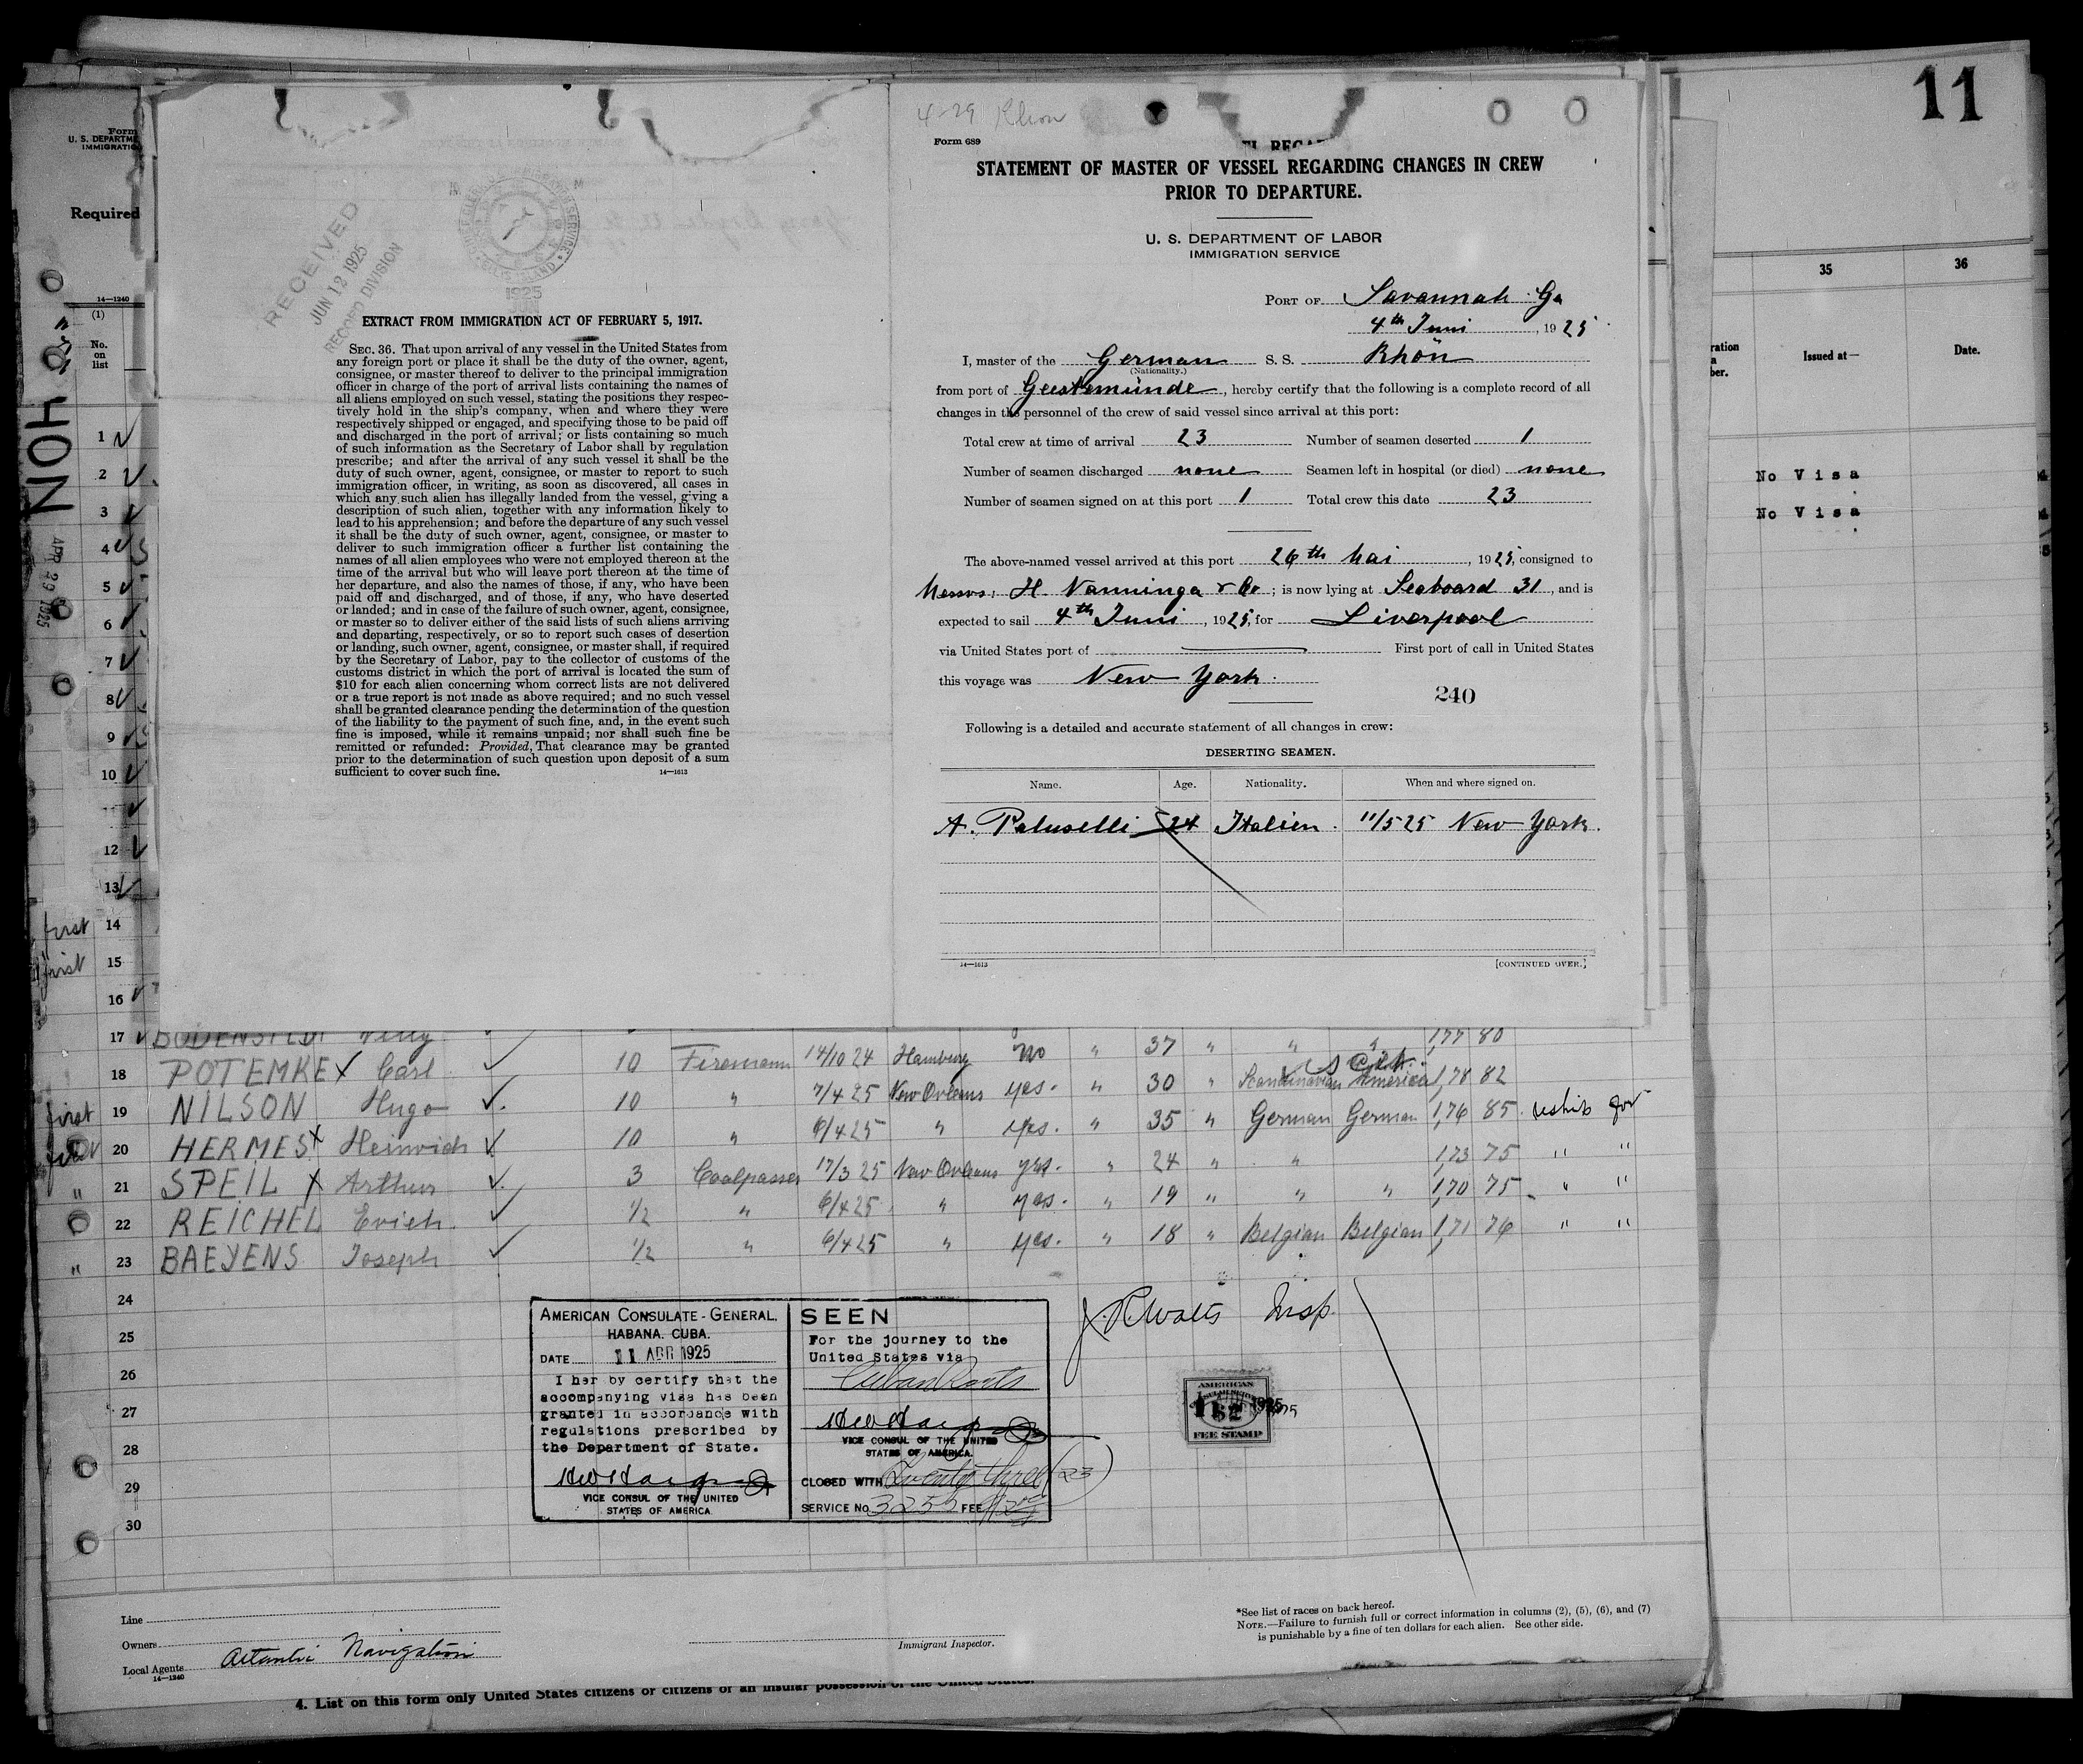 11
Form
U. S. DEPARTME
IMMIGRATIO
Required
14—1240
(1)
No.
on
list
APR 29 1925
RECEIVED
JUN 12 1925
RECORD DIVISION
1925
EXTRACT FROM IMMIGRATION ACT OF FEBRUARY 5, 1917.
SEC. 36. That upon arrival of any vessel in the United States from
any foreign port or place it shall be the duty of the owner, agent,
consignee, or master thereof to deliver to the principal immigration
officer in charge of the port of arrival lists containing the names of
all aliens employed on such vessel, stating the positions they respec-
tively hold in the ship's company, when and where they were
respectively shipped or engaged, and specifying those to be paid off
and discharged in the port of arrival; or lists containing so much
of such information as the Secretary of Labor shall by regulation
prescribe; and after the arrival of any such vessel it shall be the
duty of such owner, agent, consignee, or master to report to such
immigration officer, in writing, as soon as discovered, all cases in
which any such alien has illegally landed from the vessel, giving a
description of such alien, together with any information likely to
lead to his apprehension; and before the departure of any such vessel
it shall be the duty of such owner, agent, consignee, or master to
deliver to such immigration officer a further list containing the
names of all alien employees who were not employed thereon at the
time of the arrival but who will leave port thereon at the time of
her departure, and also the names of those, if any, who have been
paid off and discharged, and of those, if any, who have deserted
or landed; and in case of the failure of such owner, agent, consignee,
or master so to deliver either of the said lists of such aliens arriving
and departing, respectively, or so to report such cases of desertion
or landing, such owner, agent, consignee, or master shall, if required
by the Secretary of Labor, pay to the collector of customs of the
customs district in which the port of arrival is located the sum of
$10 for each alien concerning whom correct lists are not delivered
or a true report is not made as above required; and no such vessel
shall be granted clearance pending the determination of the question
of the liability to the payment of such fine, and, in the event such
fine is imposed, while it remains unpaid; nor shall such fine be
remitted or refunded: Provided, That clearance may be granted
prior to the determination of such question upon deposit of a sum
sufficient to cover such fine. 14—1613
4-29 Rhon
Form 689
STATEMENT OF MASTER OF VESSEL REGARDING CHANGES IN CREW
PRIOR TO DEPARTURE.
U. S. DEPARTMENT OF LABOR
IMMIGRATION SERVICE
PORT OF Savannah Ga
4th Juni, 1925
I, master of the German S. S. Rhön
(Nationality.)
from port of Geestemünde, hereby certify that the following is a complete record of all
changes in the personnel of the crew of said vessel since arrival at this port:
Total crew at time of arrival 23 Number of seamen deserted 1
Number of seamen discharged none Seamen left in hospital (or died) none
Number of seamen signed on at this port 1 Total crew this date 23
The above-named vessel arrived at this port 26th Mai, 1925, consigned to
Messrs. H. Nanninga & Co; is now lying at Seaboard 31, and is
expected to sail 4th Juni, 1925, for Liverpool
via United States port of First port of call in United States
this voyage was New York.
240
Following is a detailed and accurate statement of all changes in crew:
DESERTING SEAMEN.
Name. Age. Nationality. When and where signed on.
A. Paluselli 24 Italien. 11/5 25 New York.
14—1613 [CONTINUED OVER.]
35 36
ration
ber.
Issued at— Date.
No Visa
No Visa
1
2
3
4
5
6
7
8
9
10
12
13
first 14
first 15
16
17 37 " " " 1,77 80
18 POTEMKE x Carl 10 Firemann 14/10 24 Hamburg no " 30 " Scandinavian America 1,78 82
first 19 NILSON Hugo 10 " 7/4 25 New Orleans yes. " 35 " German German 1,76 85
20 HERMES x Heinrich 10 " 6/4 25 " yes. " 24 " " 1,73 75 " "
" 21 SPEIL x Arthur 3 Coalpasser 17/3 25 New Orleans yes. " 19 " " " 1,70 75 " "
22 REICHEL Erich 1/2 " 6/4 25 " yes. " 18 " Belgian Belgian 1,71 76 " "
" 23 BAEYENS Joseph 1/2 " 6/4 25 " yes.
24
25
26
27
28
29
30
AMERICAN CONSULATE-GENERAL.
HABANA. CUBA.
DATE 11 APR 1925
I her by certify that the
accompanying visa has been
granted in accordance with
regulations prescribed by
the Department of State.
VICE CONSUL OF THE UNITED
STATES OF AMERICA
SEEN
For the journey to the
United States via
Cuban Ports
VICE CONSUL OF THE UNITED
STATES OF AMERICA.
CLOSED WITH Twenty three (23)
SERVICE No 3255 FEE
J. R. Watts Insp.
AMERICAN
$2
1925
FEE STAMP
Line
Owners
Local Agents Atlantic Navigation
14—1240
Immigrant Inspector.
*See list of races on back hereof.
NOTE.—Failure to furnish full or correct information in columns (2), (5), (6), and (7)
is punishable by a fine of ten dollars for each alien. See other side.
4. List on this form only United States citizens or citizens of an insular possession of the United States.